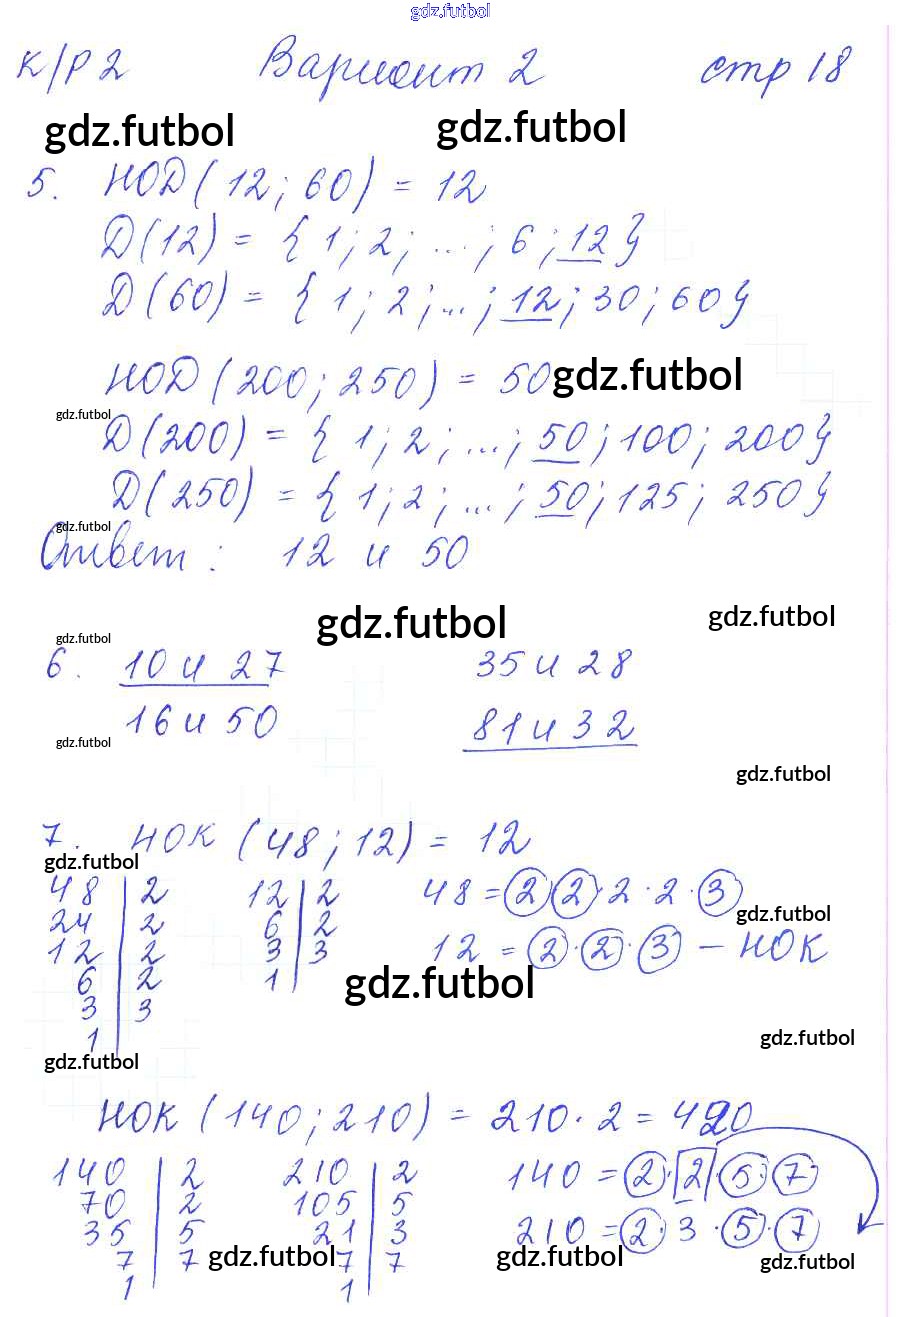 gdz.futbol
К/Р 2 Вариант 2 стр 18
gdz.futbol gdz.futbol
5. НОД (12; 60) = 12
Д(12) = {1; 2; ...; 6; 12}
Д(60) = {1; 2; ...; 12; 30; 60}
НОД (200; 250) = 50 gdz.futbol
gdz.futbol
Д(200) = {1; 2; ...; 50; 100; 200}
Д(250) = {1; 2; ...; 50; 125; 250}
gdz.futbol
Ответ: 12 и 50
gdz.futbol gdz.futbol
gdz.futbol
6. 10 и 27 35 и 28
16 и 50 81 и 32
gdz.futbol
gdz.futbol
7. НОК (48; 12) = 12
gdz.futbol
48 | 2 12 | 2 48 = 2 · 2 · 2 · 2 · 3
24 | 2 6 | 2 gdz.futbol
12 | 2 3 | 3 12 = 2 · 2 · 3 – НОК
6 | 2 1 | gdz.futbol
3 | 3
1 | gdz.futbol
gdz.futbol
НОК (140; 210) = 210 · 2 = 420
140 | 2 210 | 2 140 = 2 · 2 · 5 · 7
70 | 2 105 | 5
35 | 5 21 | 3 210 = 2 · 3 · 5 · 7
7 | 7 gdz.futbol 7 | 7 gdz.futbol gdz.futbol
1 | 1 |